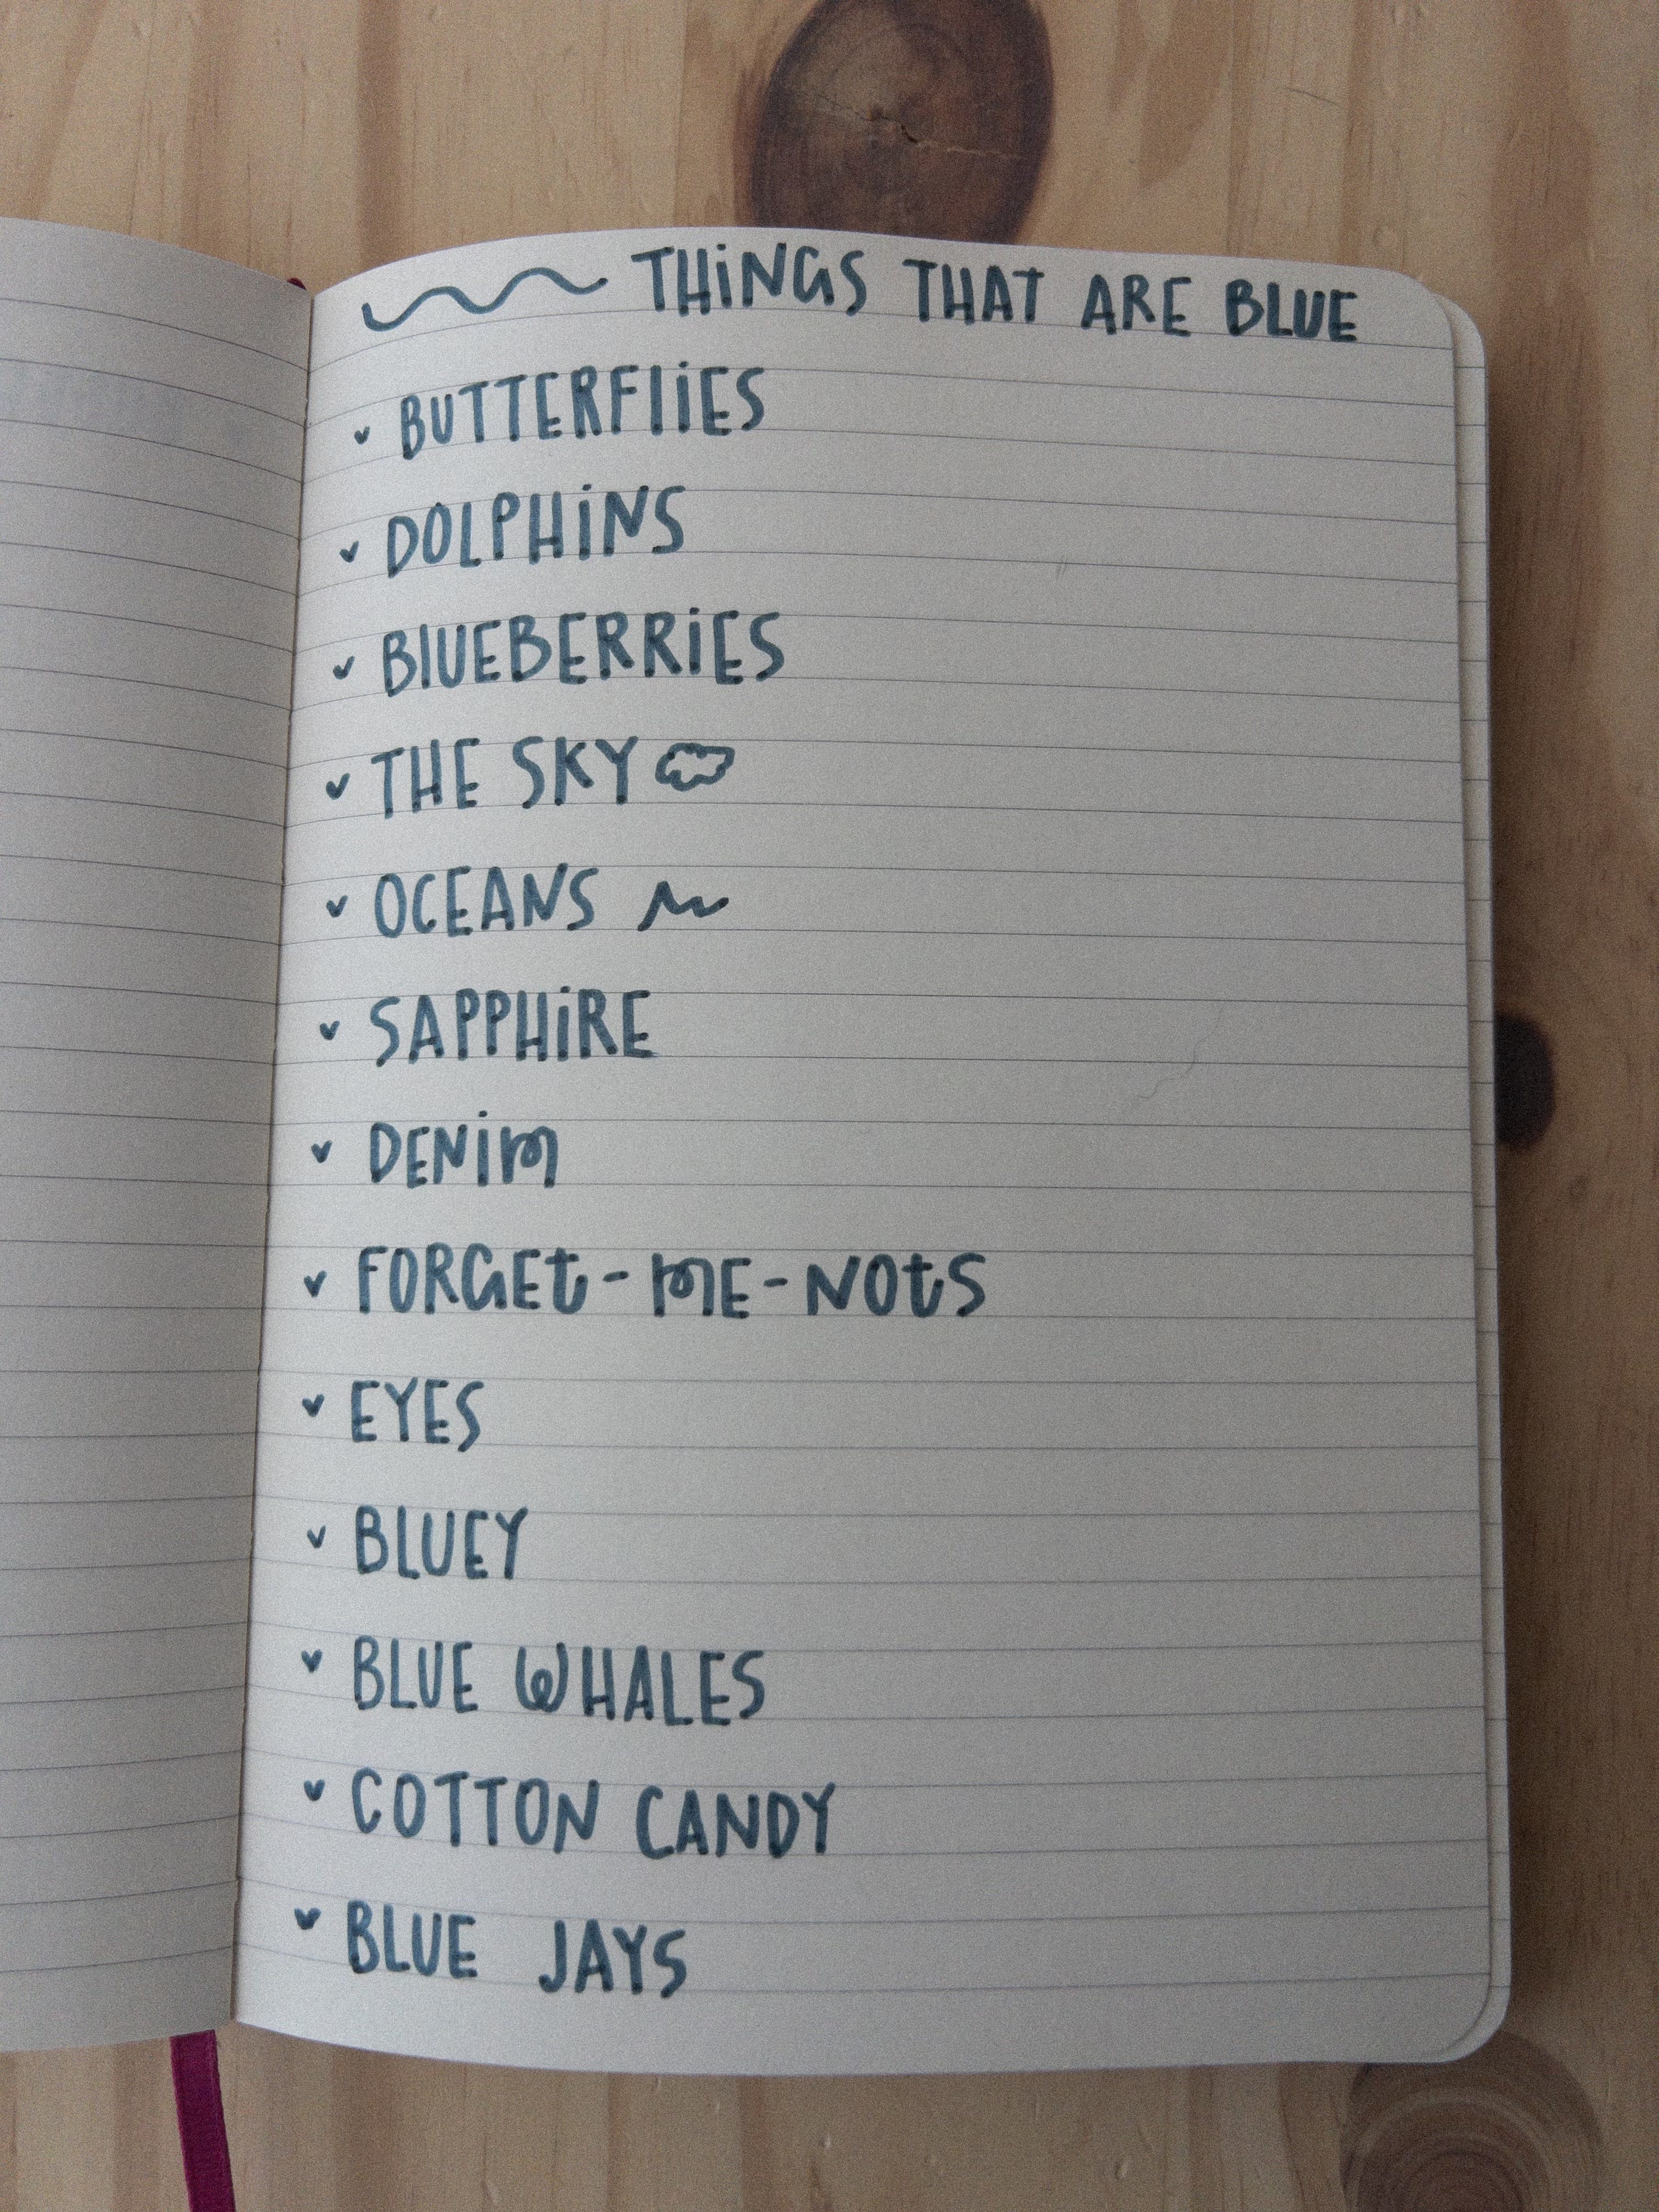 THiNGS THAT ARE BLUE
BUTTERFliES
DOLPHiNS
BlUEBERRiES
THE SKY
OCEANS
SAPPHiRE
DENiM
FORGEt-ME-NOtS
EYES
BLUEY
BLUE WHALES
COTTON CANDY
BLUE JAYS